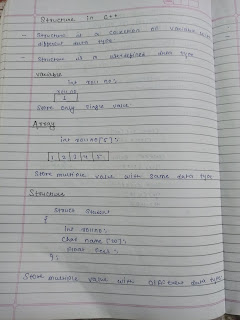 Structure in C++
- Structure is a collection of variable with
different data type.
- Structure is a userdefined data type
variable
int roll no;
roll no
1
Store only single value
Array
int rollno[5];
1 2 3 4 5
Store multiple value with same data type
Structure
struct student
{
int rollno;
char name [10];
float
};
Store multiple value with different data type